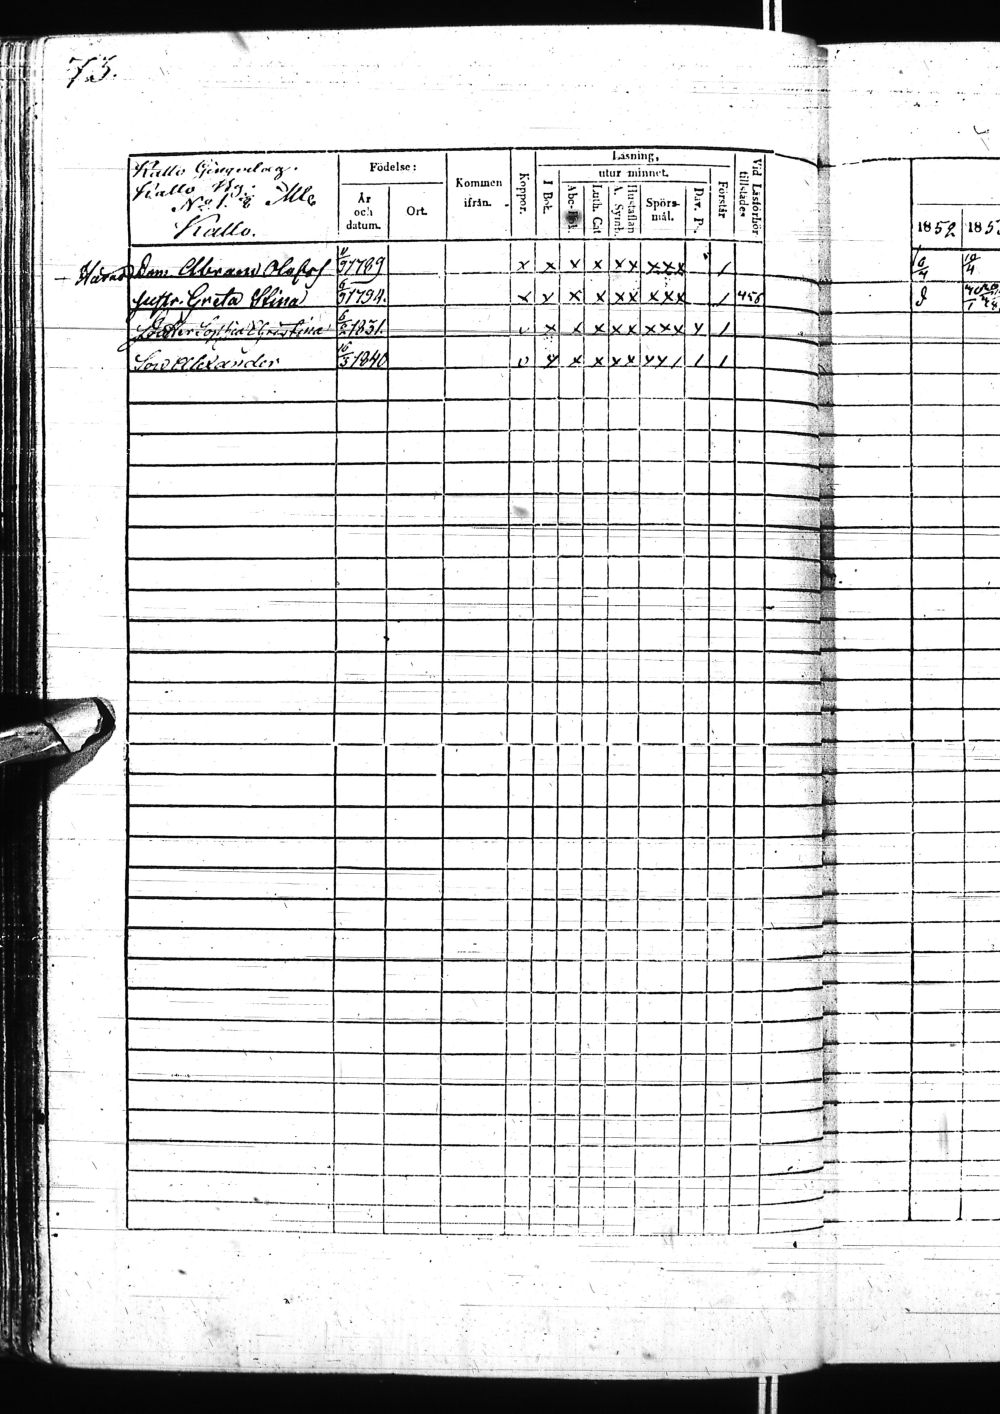 73.
Kallo Gingerlag.
Kallo By.
No 1.
Kallo.
Födelse:
År och datum.
Ort.
Kommen ifrån.
Koppor.
Läsning,
utur minnet.
I Bok.
Abc-Bok
Luth. Cat
A. Symb.
Hustaflan
Spörs-mål.
Dav. Ps.
Förstår
Vid Läsförhör tillstädes
1852 1853
Abram Olofss 1789 x x x x x x x x x 1 6/4 10/4
hustr Greta Stina 1794. x x x x x x x x 1 456
Dotter Sophia Christina 6/2 1831. v x x x x x x x x 1
Son Alexander 16/3 1840 v x x x x x 1 1